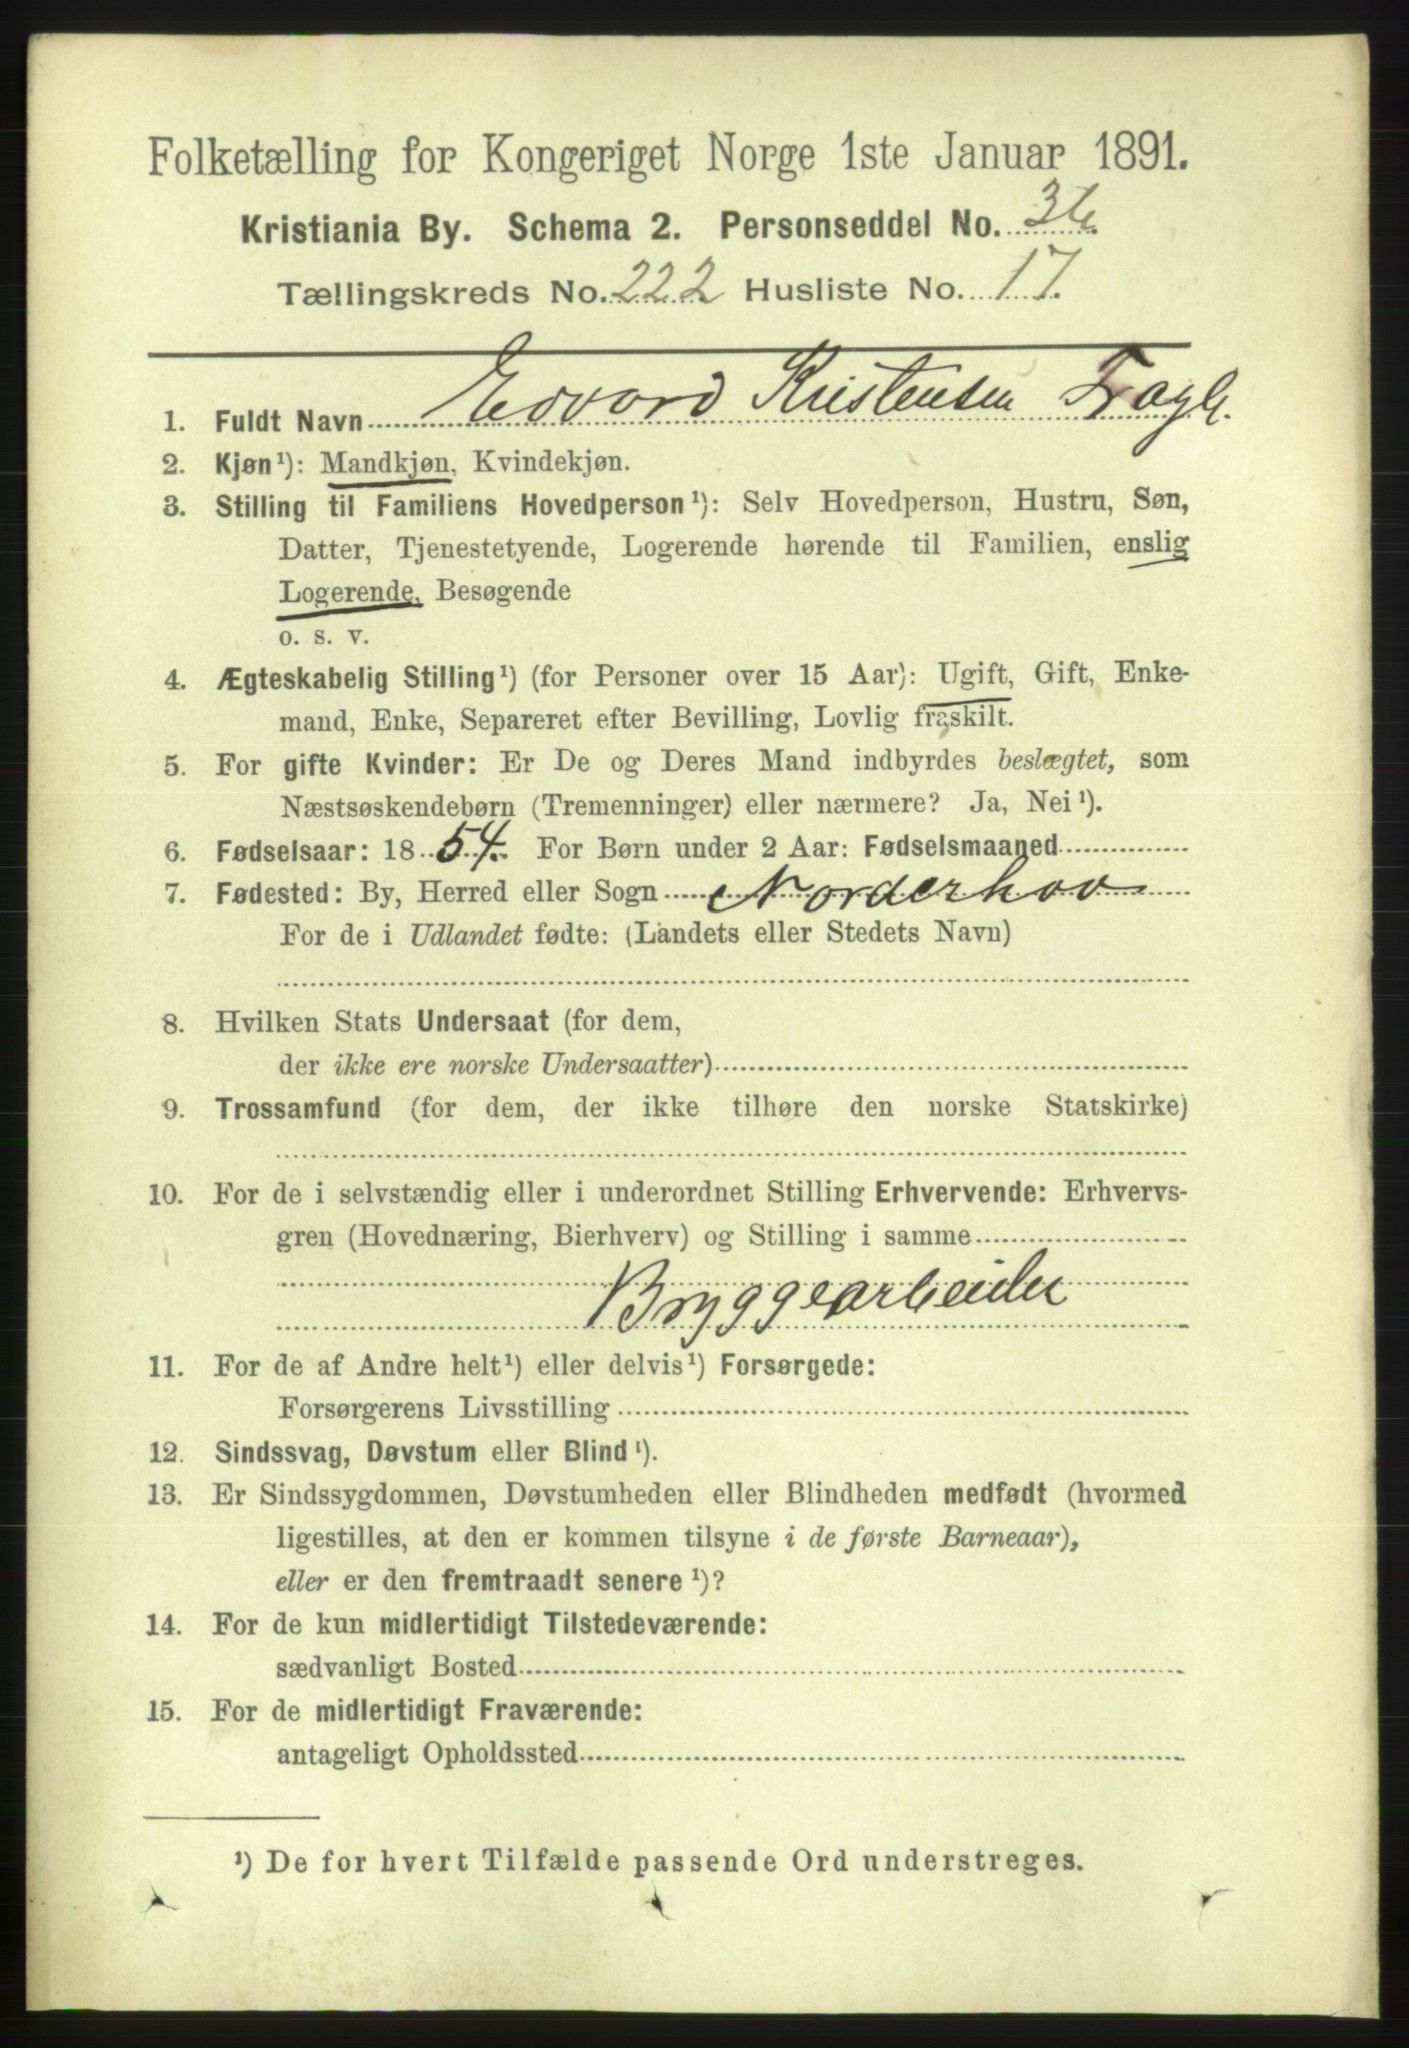 Folketælling for Kongeriget Norge 1ste Januar 1891.
Kristiania By. Schema 2. Personseddel No. 36.
Tællingskreds No. 222 Husliste No. 17.
1. Fuldt Navn Edvard Kristensen
2. Kjøn¹): Mandkjøn, Kvindekjøn.
3. Stilling til Familiens Hovedperson¹): Selv Hovedperson, Hustru, Søn,
Datter, Tjenestetyende, Logerende hørende til Familien, enslig
Logerende, Besøgende
o. s. v.
4. Ægteskabelig Stilling¹) (for Personer over 15 Aar): Ugift, Gift, Enke-
mand, Enke, Separeret efter Bevilling, Lovlig fraskilt.
5. For gifte Kvinder: Er De og Deres Mand indbyrdes beslægtet, som
Næstsøskendebørn (Tremenninger) eller nærmere? Ja, Nei¹).
6. Fødselsaar: 1854. For Børn under 2 Aar: Fødselsmaaned
7. Fødested: By, Herred eller Sogn Norderhov
For de i Udlandet fødte: (Landets eller Stedets Navn)
8. Hvilken Stats Undersaat (for dem,
der ikke ere norske Undersaatter)
9. Trossamfund (for dem, der ikke tilhøre den norske Statskirke)
10. For de i selvstændig eller i underordnet Stilling Erhvervende: Erhvervs-
gren (Hovednæring, Bierhverv) og Stilling i samme
Bryggearbeider
11. For de af Andre helt¹) eller delvis¹) Forsørgede:
Forsørgerens Livsstilling
12. Sindssvag, Døvstum eller Blind¹).
13. Er Sindssygdommen, Døvstumheden eller Blindheden medfødt (hvormed
ligestilles, at den er kommen tilsyne i de første Barneaar),
eller er den fremtraadt senere¹)?
14. For de kun midlertidigt Tilstedeværende:
sædvanligt Bosted
15. For de midlertidigt Fraværende:
antageligt Opholdssted
¹) De for hvert Tilfælde passende Ord understreges.